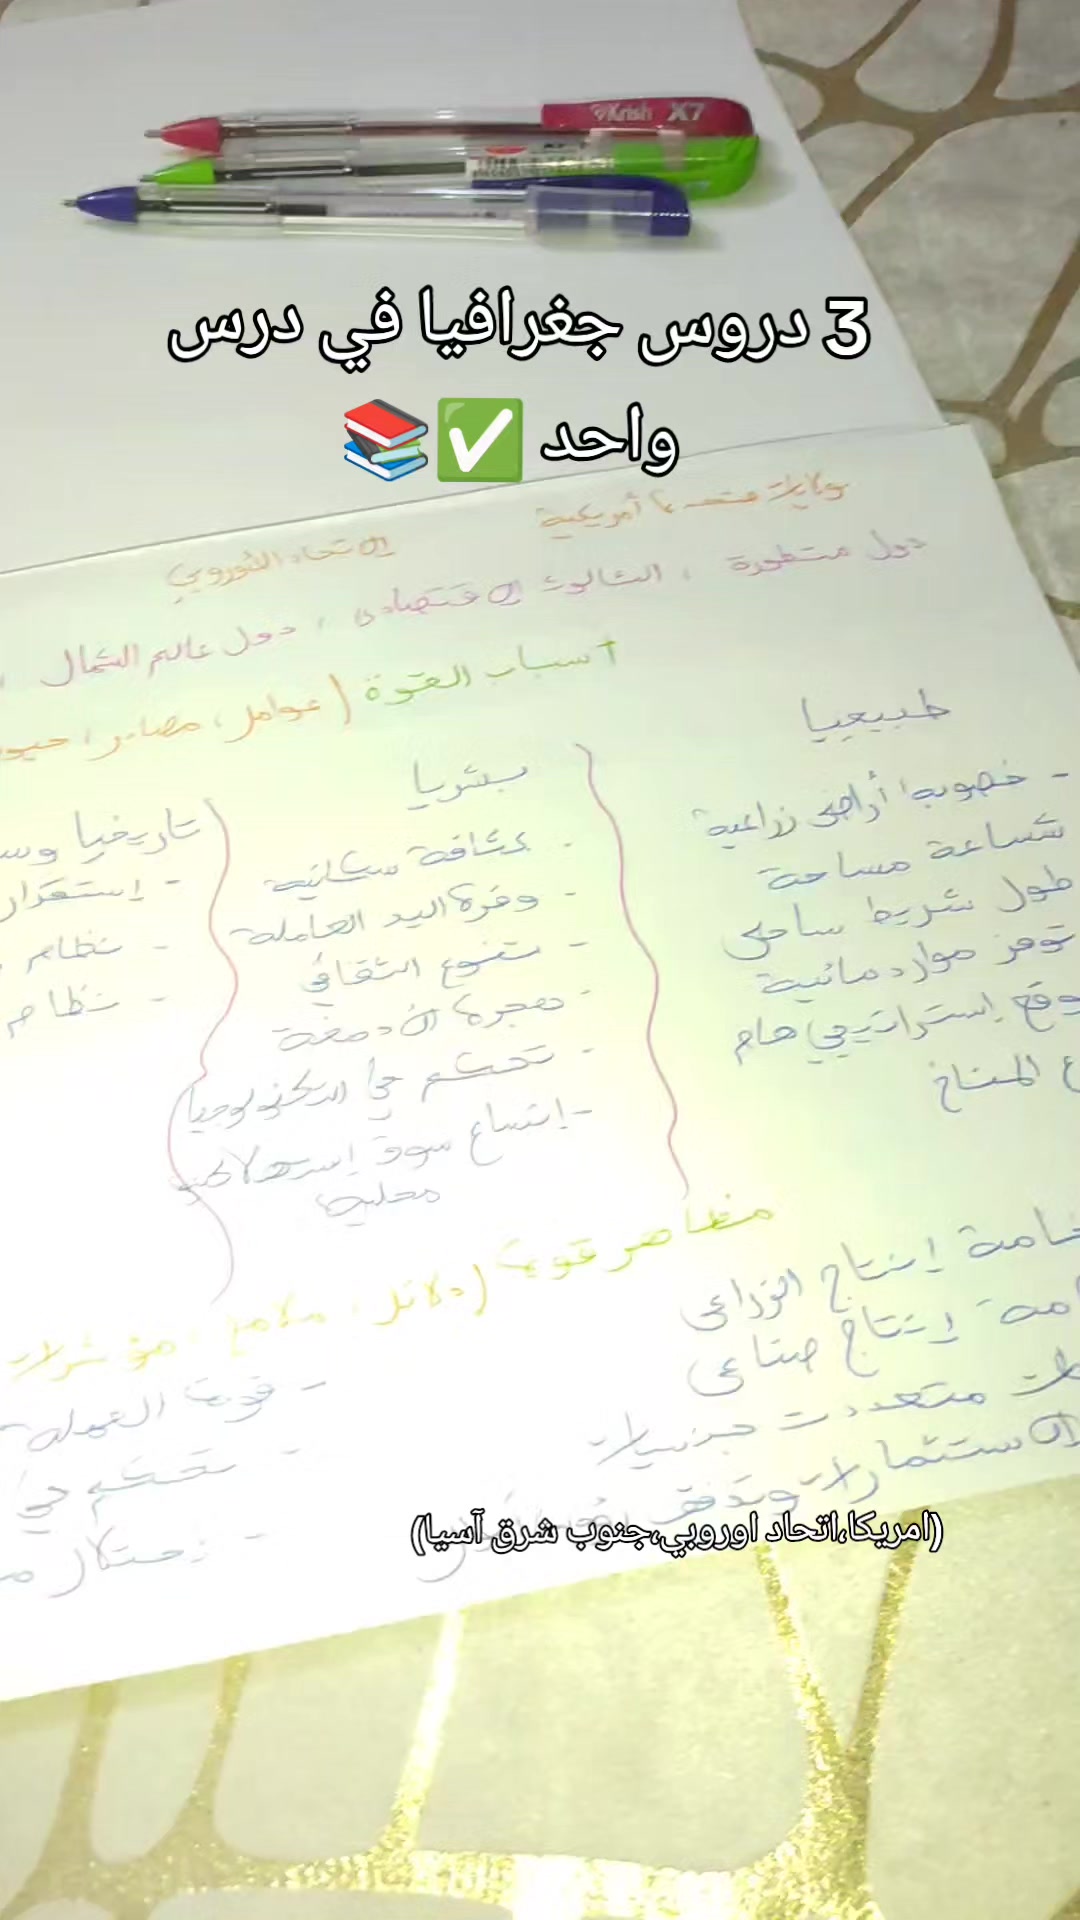 Krish X7
3 دروس جغرافيا في درس
واحد ✅📚
ولايات متحدة أمريكية
الاتحاد الأوروبي
دول متطورة ، الثالوث الاقتصادي ، دول عالم الشمال
أسباب القوة (عوامل، مصادر،
طبيعيا
- خصوبة أراضي زراعية
شساعة مساحة
طول شريط ساحلي
توفر موارد مائية
إستراتيجي هام
المناخ
بشريا
- كثافة سكانية
- وفرة اليد العاملة
- تنوع الثقافي
- هجرة الأدمغة
- تحكم في التكنولوجيا
- إتساع سوق إستهلاكية
محلية
تاريخيا
- إستقرار
- نظام
- نظام
مظاهر قوة (دلائل، ملامح، مؤشرات
إنتاج الزراعي
إنتاج صناعي
متعددت جنسيات
الاستثمارات وتدفق
- قوة العملة
- تحكم في
- إحتكار
(امريكا،اتحاد اوروبي،جنوب شرق آسيا)